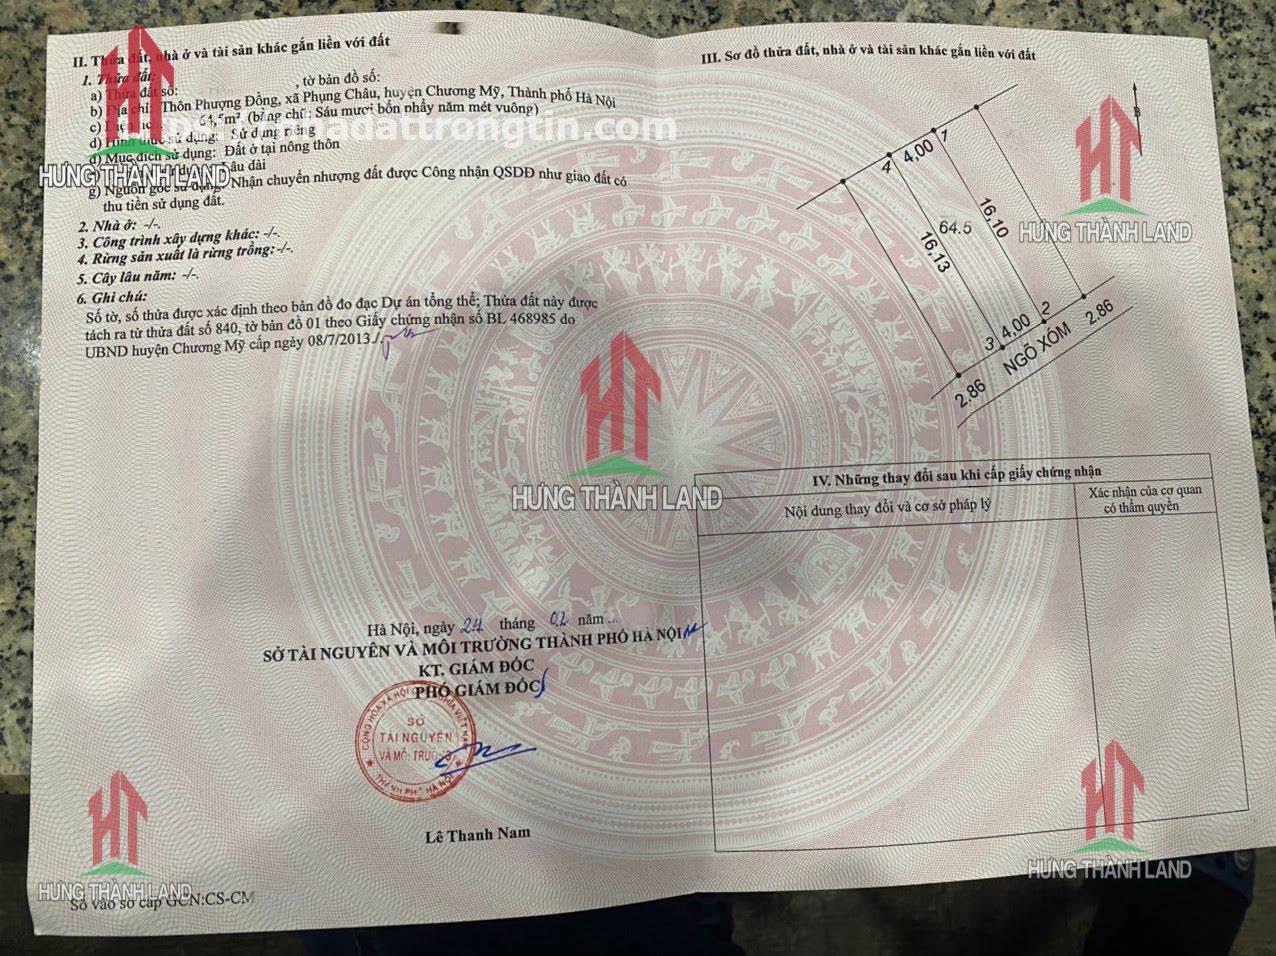 II. Thửa đất, nhà ở và tài sản khác gắn liền với đất
1. Thửa đất:
a) Thửa đất số: , tờ bản đồ số:
b) Địa chỉ: Thôn Phượng Đồng, xã Phụng Châu, huyện Chương Mỹ, Thành phố Hà Nội
c) 64,5m², (bằng chữ: Sáu mươi bốn phẩy năm mét vuông)
d) Hình thức sử dụng: Sử dụng riêng
đ) Mục đích sử dụng: Đất ở tại nông thôn
sử dụng: Lâu dài
g) Nguồn gốc sử dụng: Nhận chuyển nhượng đất được Công nhận QSDĐ như giao đất có
thu tiền sử dụng đất.
2. Nhà ở: -/-.
3. Công trình xây dựng khác: -/-.
4. Rừng sản xuất là rừng trồng: -/-.
5. Cây lâu năm: -/-.
6. Ghi chú:
Số tờ, số thửa được xác định theo bản đồ đo đạc Dự án tổng thể; Thửa đất này được
tách ra từ thửa đất số 840, tờ bản đồ 01 theo Giấy chứng nhận số BL 468985 do
UBND huyện Chương Mỹ cấp ngày 08/7/2013./.
Hà Nội, ngày 24 tháng 02 năm ...
SỞ TÀI NGUYÊN VÀ MÔI TRƯỜNG THÀNH PHỐ HÀ NỘI
KT. GIÁM ĐỐC
PHÓ GIÁM ĐỐC
SỞ
TÀI NGUYÊN
VÀ MÔI TRƯỜNG
THÀNH PHỐ HÀ NỘI
Lê Thanh Nam
Số vào sổ cấp GCN:CS-CM
III. Sơ đồ thửa đất, nhà ở và tài sản khác gắn liền với đất
B
4 4,00 1
64.5
16,10
16,13
3 4,00 2
NGÕ XÓM
2.86
2.86
IV. Những thay đổi sau khi cấp giấy chứng nhận
Nội dung thay đổi và cơ sở pháp lý
Xác nhận của cơ quan
có thẩm quyền
nhadattrongtin.com
HƯNG THÀNH LAND
HƯNG THÀNH LAND
HƯNG THÀNH LAND
HƯNG THÀNH LAND
HƯNG THÀNH LAND